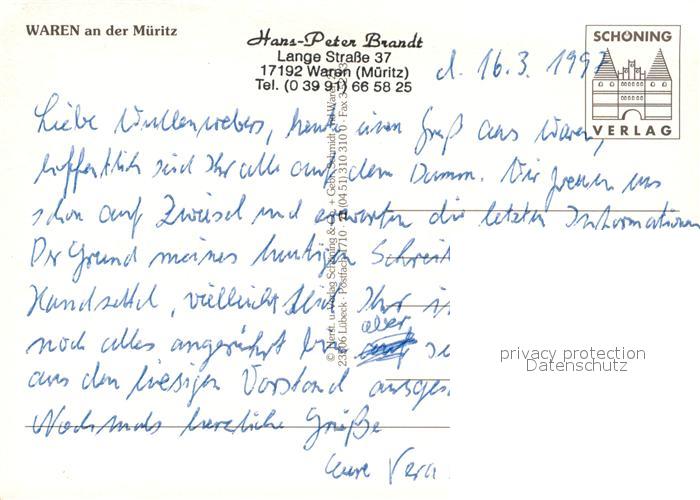 WAREN an der Müritz
Hans-Peter Brandt
Lange Straße 37
17192 Waren (Müritz)
Tel. (0 39 91) 66 58 25
SCHÖNING
VERLAG
d. 16.3. 1997
Liebe Wullenwebers, heute einen Gruß aus Waren,
hoffentlich seid Ihr alle auf dem Damm. Wir freuen uns
schon auf Zwiesel und erwarten die letzten Informationen
Der Grund meines heutigen Schreib
Handzettel, vielleicht Ihr
noch alles aber
aus den hiesigen Vorstand
Nochmals herzliche Grüße
Eure Vera
© Herst. u. Verlag Schöning & Co. + Gebr. Schmidt
23506 Lübeck · Postfach 1710 · Tel. (04 51) 310 310 · Fax
privacy protection
Datenschutz